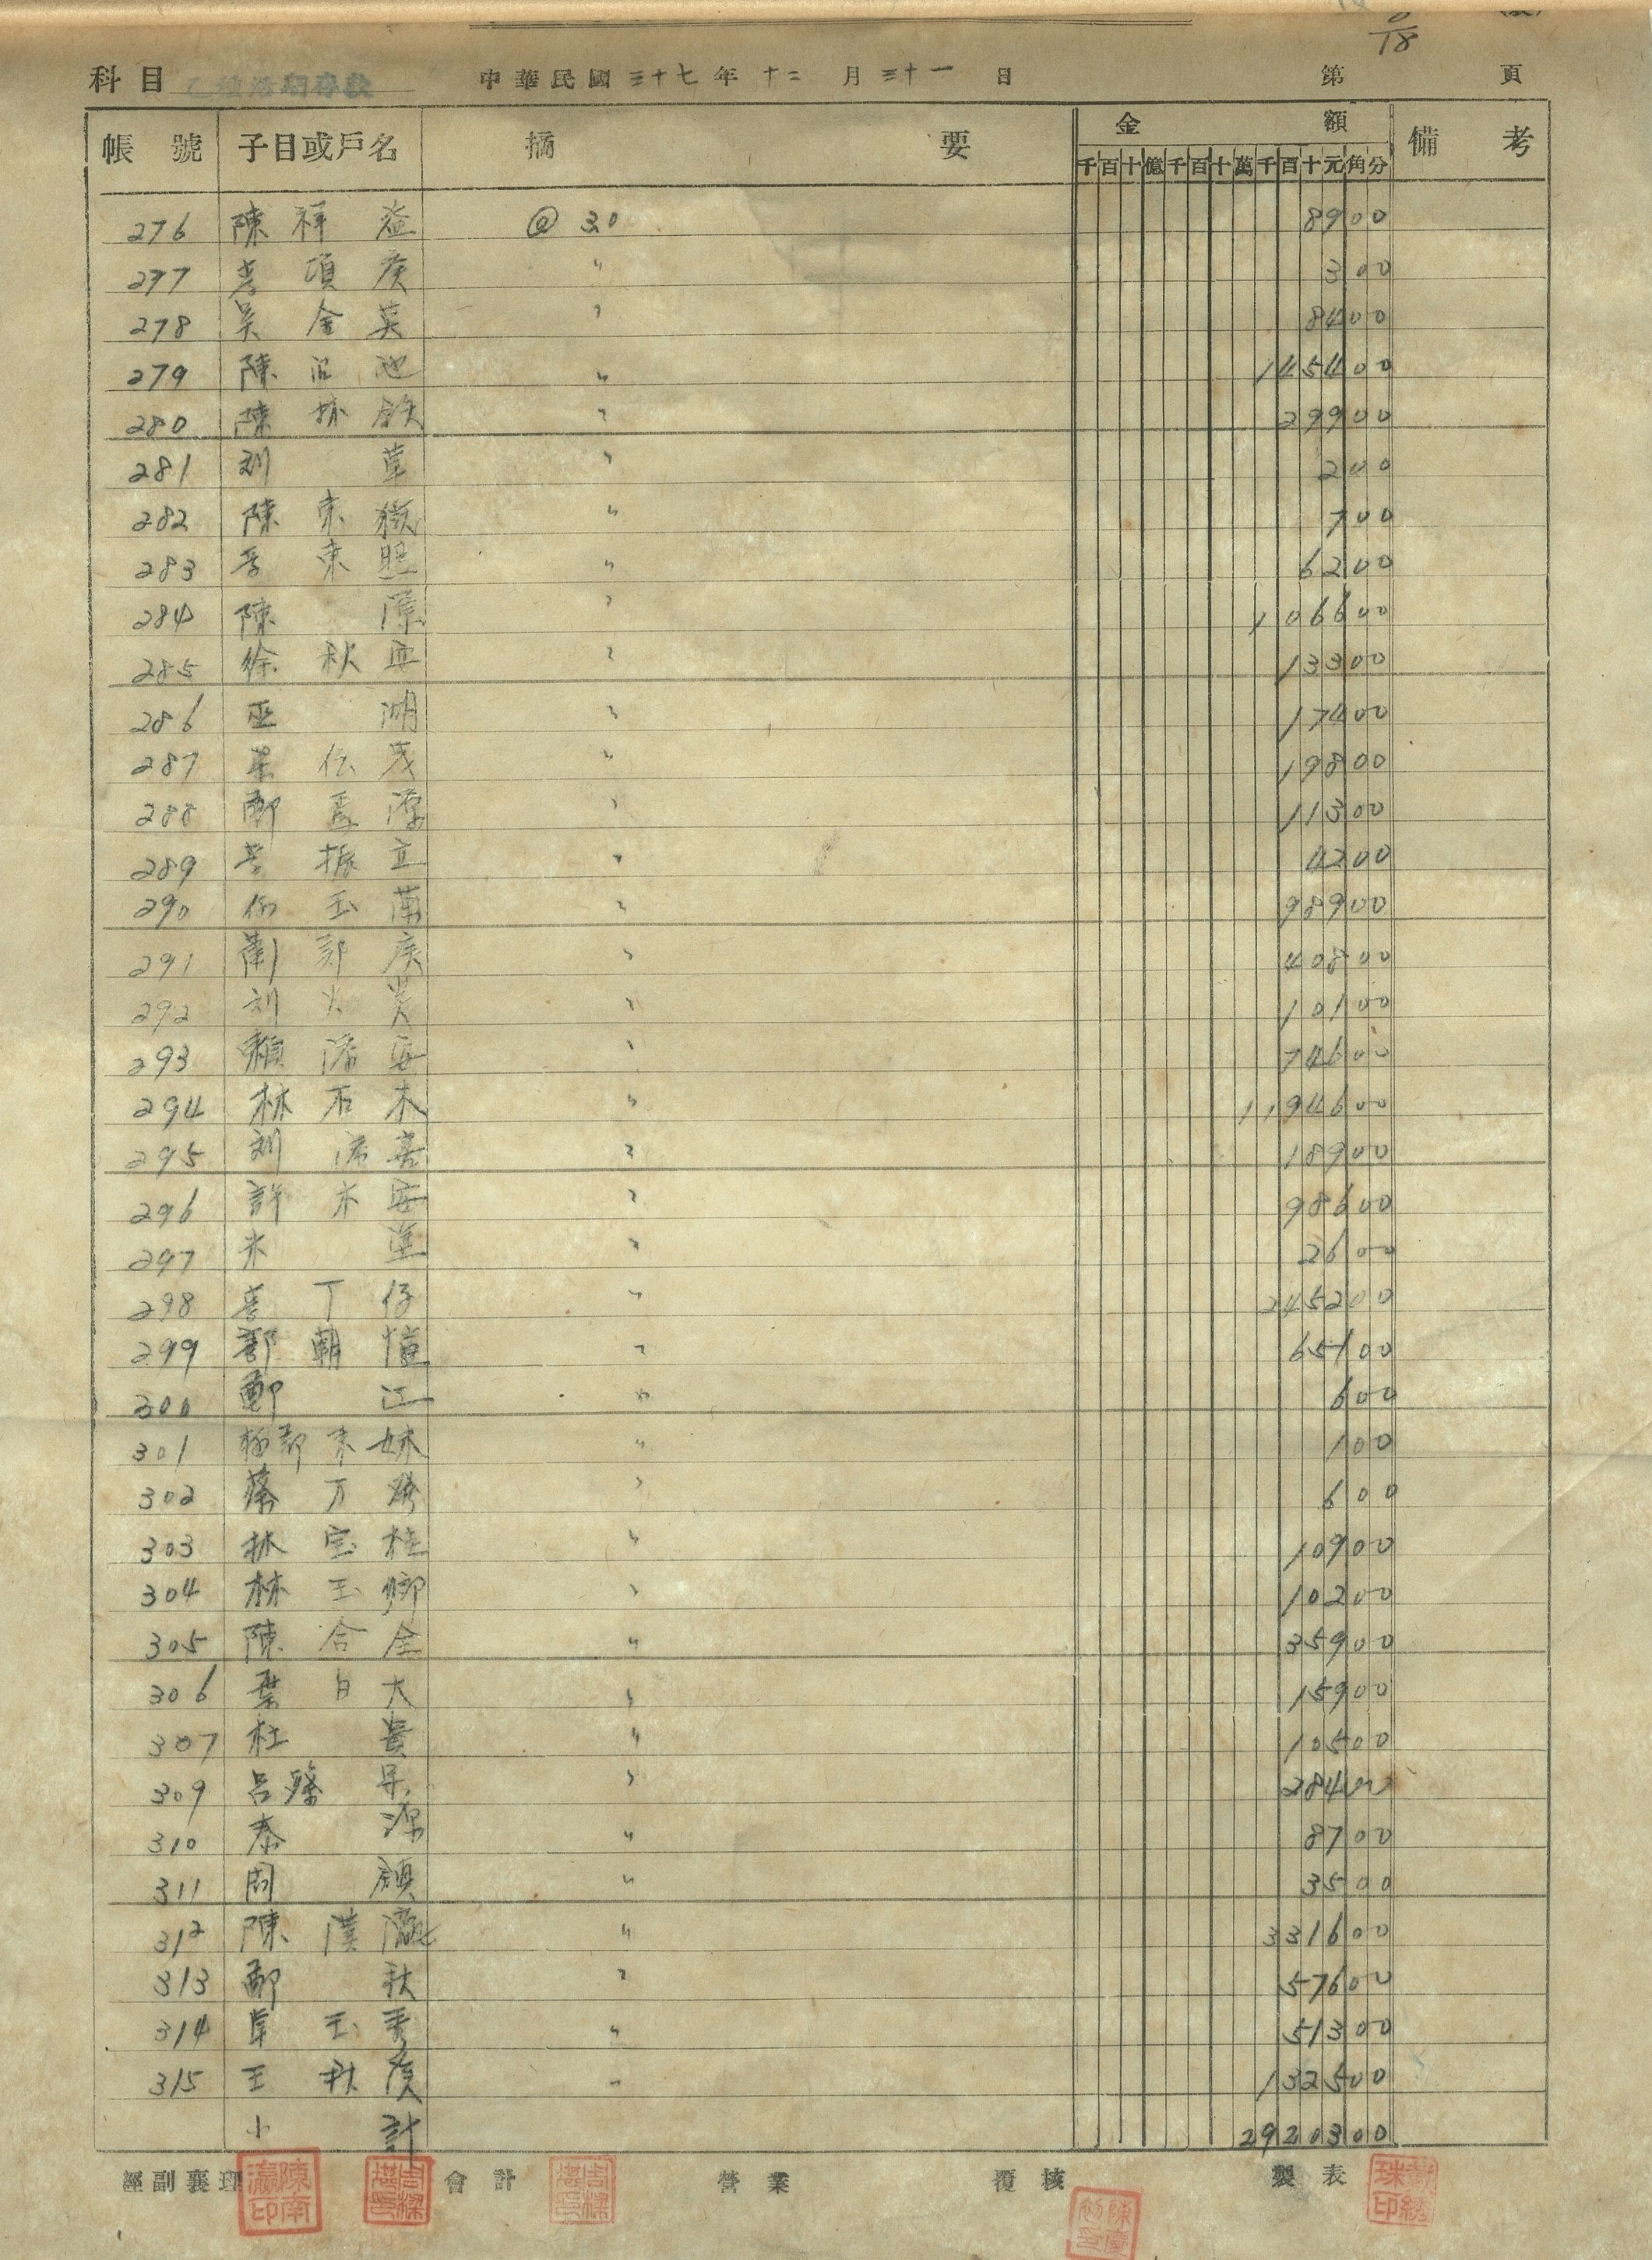 18
科目 乙種活期存款 中華民國三十七年十二月三十一日 第 頁
帳號 子目或戶名 摘要 金額 備考
千百十億千百十萬千百十元角分
276 陳祥益 @30 8900
277 李項 〃 300
278 吳金英 〃 8400
279 陳沼池 〃 145400
280 陳 欽 〃 29900
281 劉草 〃 200
282 陳東嶽 〃 700
283 李東照 〃 6200
284 陳 〃 106600
285 徐秋 〃 13300
286 巫湖 〃 17400
287 葉伝茂 〃 19800
288 鄭 源 〃 11300
289 李振立 〃 4200
290 何玉蘭 〃 98900
291 衛郭 〃 40800
292 劉火炎 〃 10100
293 賴添安 〃 74600
294 林石木 〃 1194600
295 劉添喜 〃 18900
296 許木安 〃 98600
297 朱 〃 2600
298 李丁仔 〃 245200
299 郭朝 〃 65100
300 鄭江 〃 600
301 楊郭 妹 〃 100
302 蔡万 〃 600
303 林宝桂 〃 10900
304 林玉卿 〃 10200
305 陳合全 〃 35900
306 葉白大 〃 15900
307 杜貴 〃 10500
309 呂 昇 〃 28400
310 泰源 〃 8700
311 周鎮 〃 3500
312 陳漢瀛 〃 331600
313 鄭秋 〃 57600
314 卓玉秀 〃 51300
315 王秋 〃 132500
小計 2920300
經副襄理 會計 營業 覆核 製表
陳南瀛印 周樑 周樑 陳慶 珠印